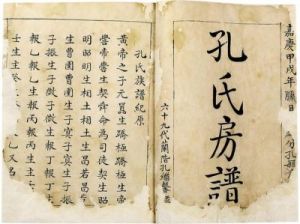 嘉慶甲戌年臘日
孔氏房譜
六十九代蘭階孔繼
孔氏族譜紀原
黃帝之子元囂生蟜極蟜極生帝
嚳帝嚳生契舜命為司徒契生昭
明昭明生相土相土生昌若昌若
生曹圉曹圉生子冥子冥生子振
子振生子微子微生報丁報丁生
報乙報乙生報丙報丙生主
壬生主癸 乙又名